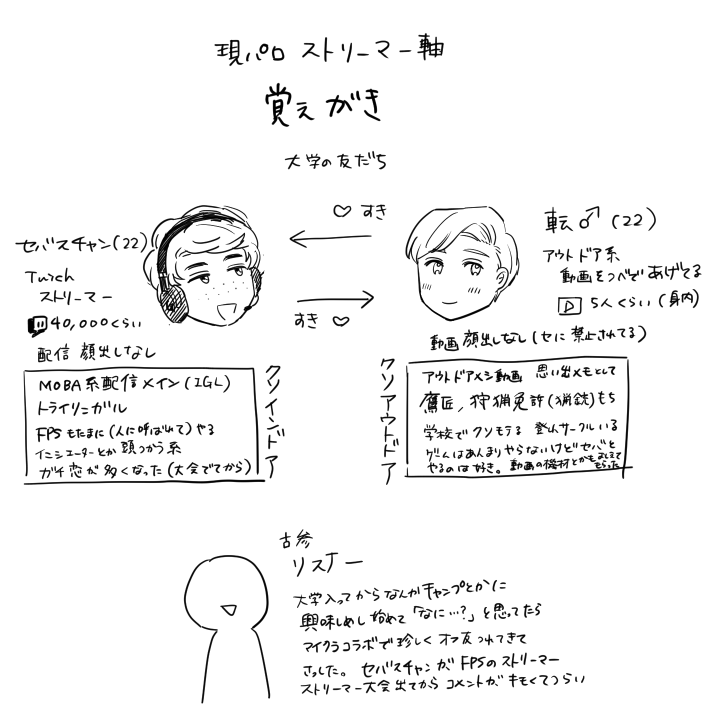 現パロ ストリーマー軸
覚えがき
大学の友だち
♡ すき
すき ♡
セバスチャン(22)
Twitch
ストリーマー
40,000くらい
配信 顔出しなし
MOBA系配信メイン(IGL)
トライリンガル
FPSもたまに(人に呼ばれて)やる
イニシエーターとか頭つかう系
ガチ恋が多くなった(大会でてから)
クソインドア
転♂(22)
アウトドア系
動画をつべであげてる
5人くらい(身内)
動画 顔出しなし(セに禁止されてる)
アウトドアメシ動画 思い出メモとして
鷹匠、狩猟免許(猟銃)もち
学校でクソモテる 登山サークルいる
ゲームはあんまりやらないけどセバと
やるのは好き。動画の機材とかもおしえて
もらった
クソアウトドア
古参
リスナー
大学入ってからなんかキャンプとかに
興味しめし始めて「なに…?」と思ってたら
マイクラコラボで珍しくオフ友つれてきて
さっした。セバスチャンがFPSのストリーマー
ストリーマー大会出てからコメントがキモくてつらい